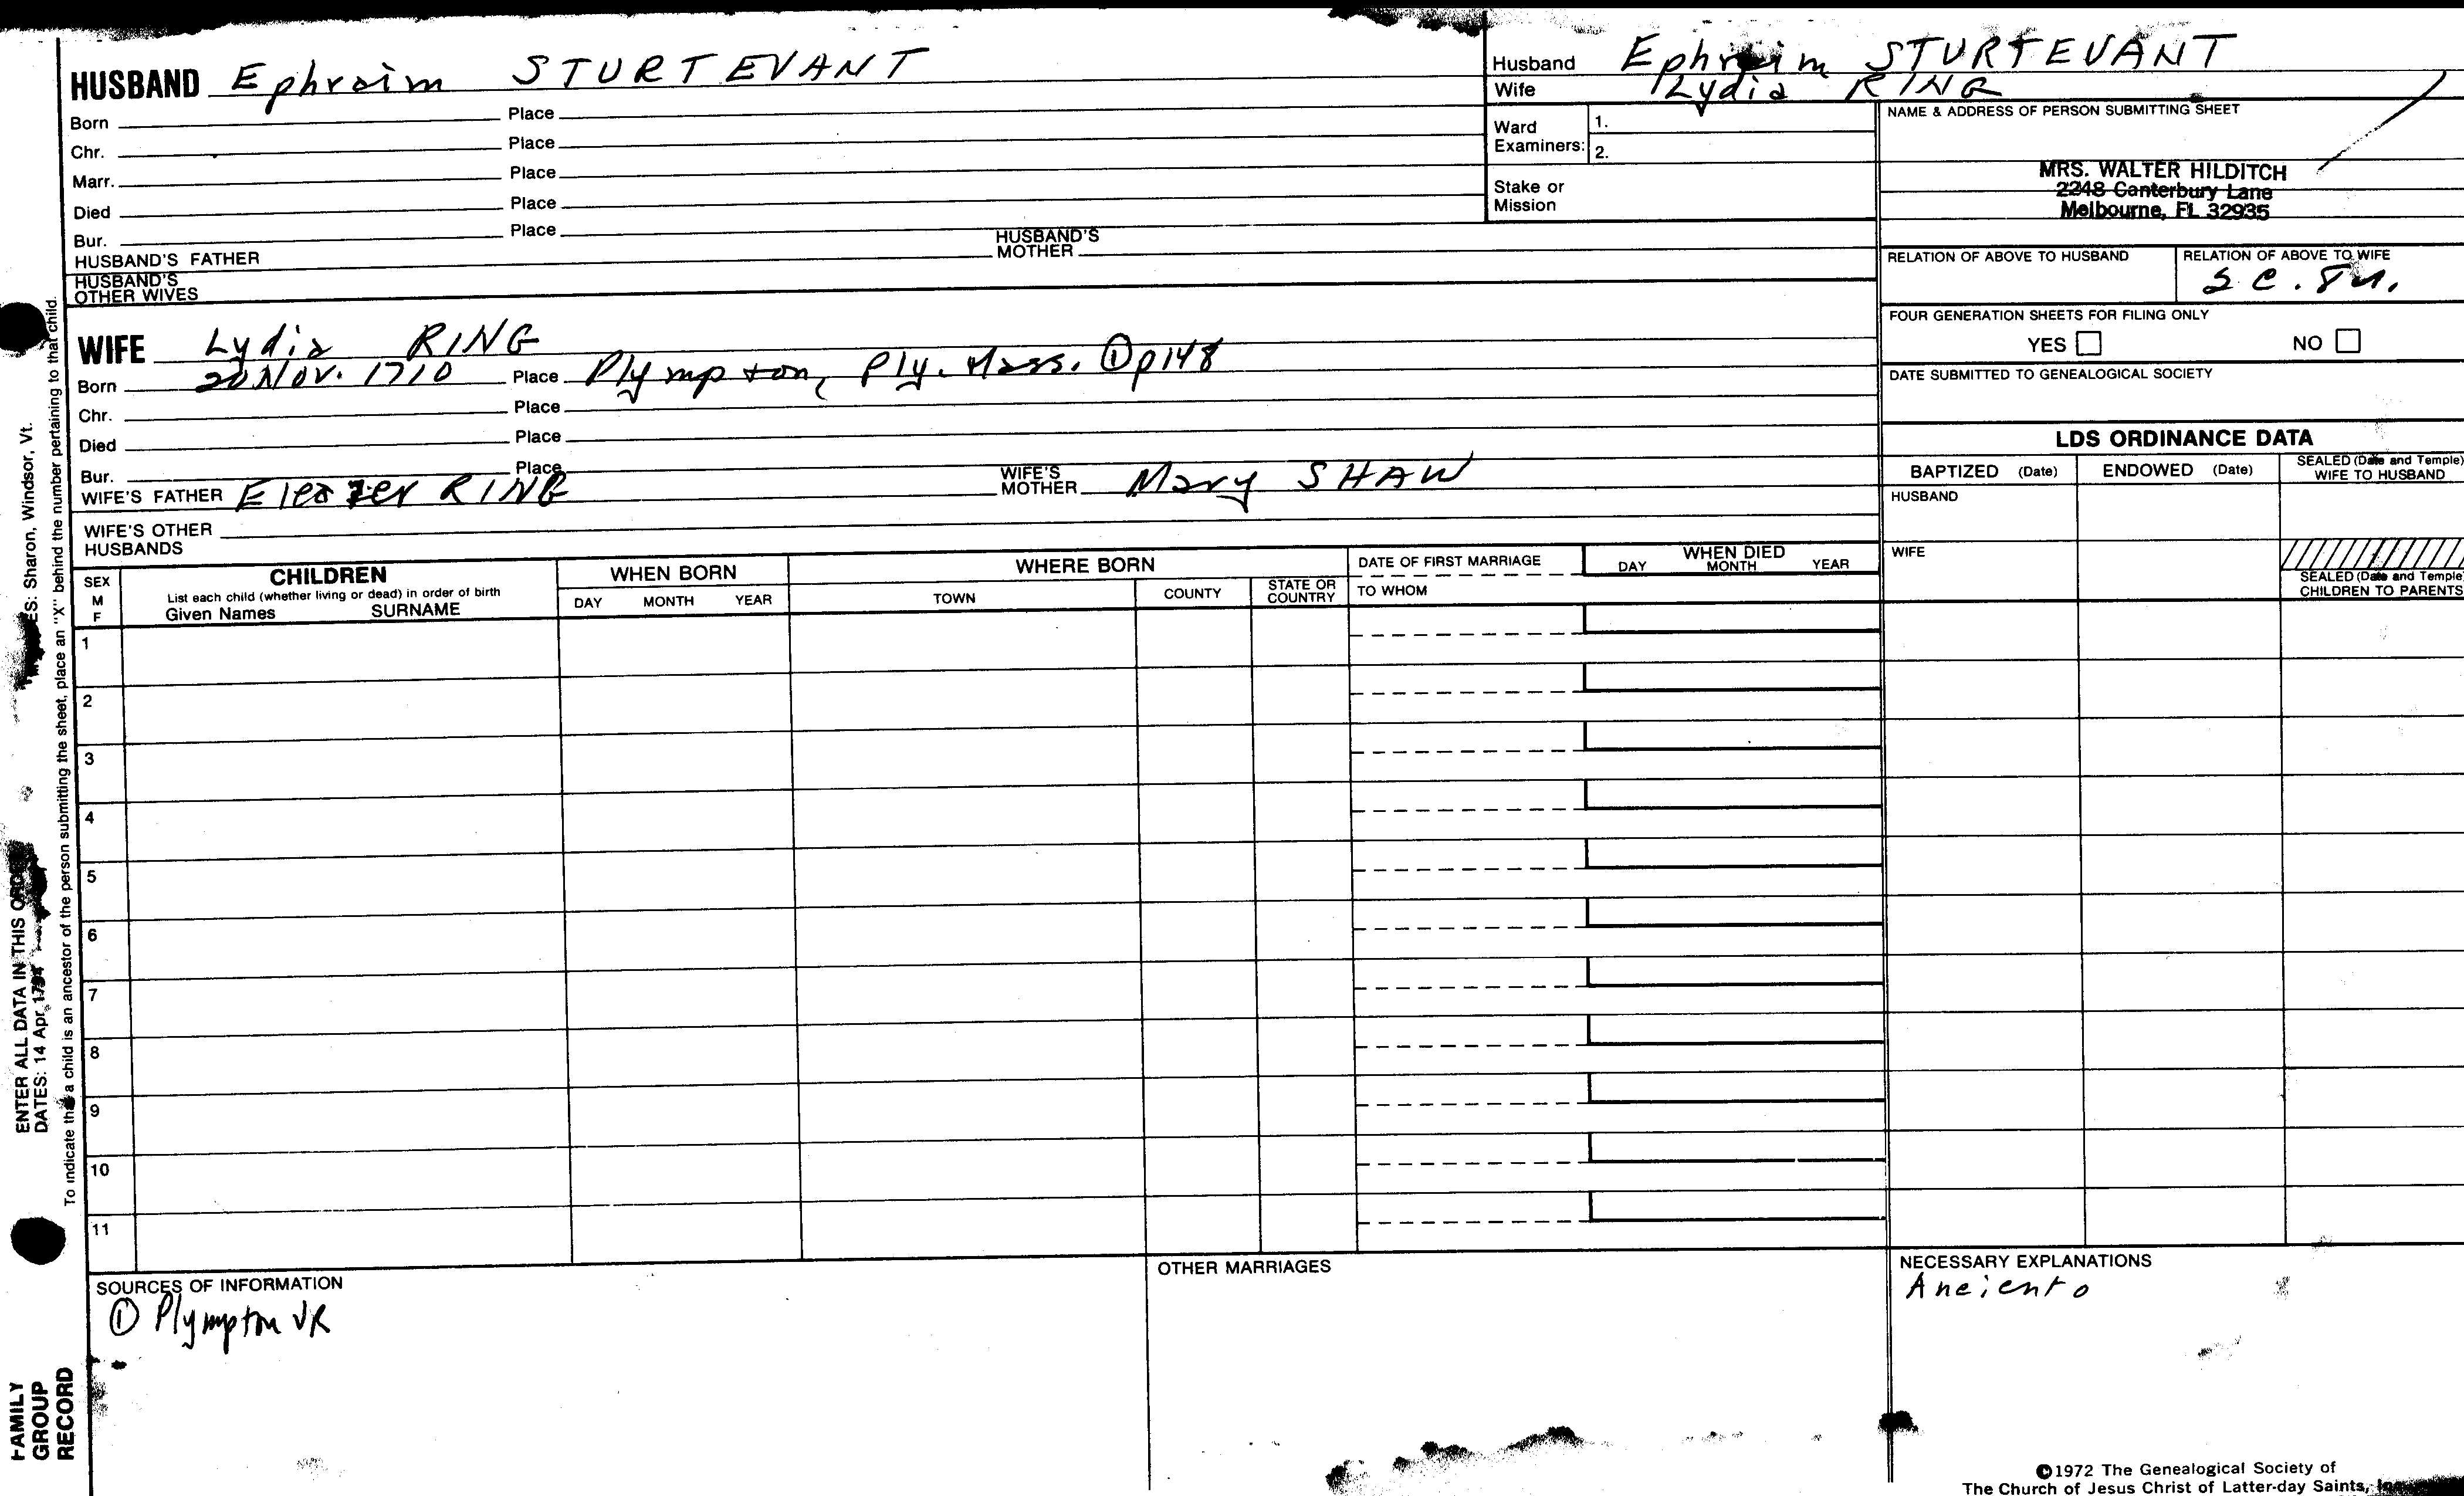 HUSBAND Ephraim STURTEVANT
Born Place
Chr. Place
Marr. Place
Died Place
Bur. Place
HUSBAND'S FATHER HUSBAND'S MOTHER
HUSBAND'S OTHER WIVES
Husband Ephraim STURTEVANT
Wife Lydia RING
Ward Examiners: 1.
2.
Stake or Mission
NAME & ADDRESS OF PERSON SUBMITTING SHEET
MRS. WALTER HILDITCH
2248 Canterbury Lane
Melbourne, FL 32935
RELATION OF ABOVE TO HUSBAND
RELATION OF ABOVE TO WIFE
FOUR GENERATION SHEETS FOR FILING ONLY
YES NO
DATE SUBMITTED TO GENEALOGICAL SOCIETY
WIFE Lydia RING
Born 20 Nov. 1710 Place Plympton, Ply. Mass. ① p148
Chr. Place
Died Place
Bur. Place
WIFE'S FATHER Eleazer RING WIFE'S MOTHER Mary SHAW
WIFE'S OTHER HUSBANDS
LDS ORDINANCE DATA
BAPTIZED (Date) ENDOWED (Date) SEALED (Date and Temple) WIFE TO HUSBAND
HUSBAND
WIFE
SEALED (Date and Temple) CHILDREN TO PARENTS
SEX M F
CHILDREN
List each child (whether living or dead) in order of birth
Given Names SURNAME
WHEN BORN
DAY MONTH YEAR
WHERE BORN
TOWN COUNTY STATE OR COUNTRY
DATE OF FIRST MARRIAGE
TO WHOM
WHEN DIED
DAY MONTH YEAR
1
2
3
4
5
6
7
8
9
10
11
SOURCES OF INFORMATION
① Plympton VR
OTHER MARRIAGES
NECESSARY EXPLANATIONS
Anciento
©1972 The Genealogical Society of
The Church of Jesus Christ of Latter-day Saints,
ENTER ALL DATA IN THIS ORDER
DATES: 14 Apr 1794 Sharon, Windsor, Vt.
To indicate that a child is an ancestor of the person submitting the sheet, place an "X" behind the number pertaining to that child.
FAMILY
GROUP
RECORD